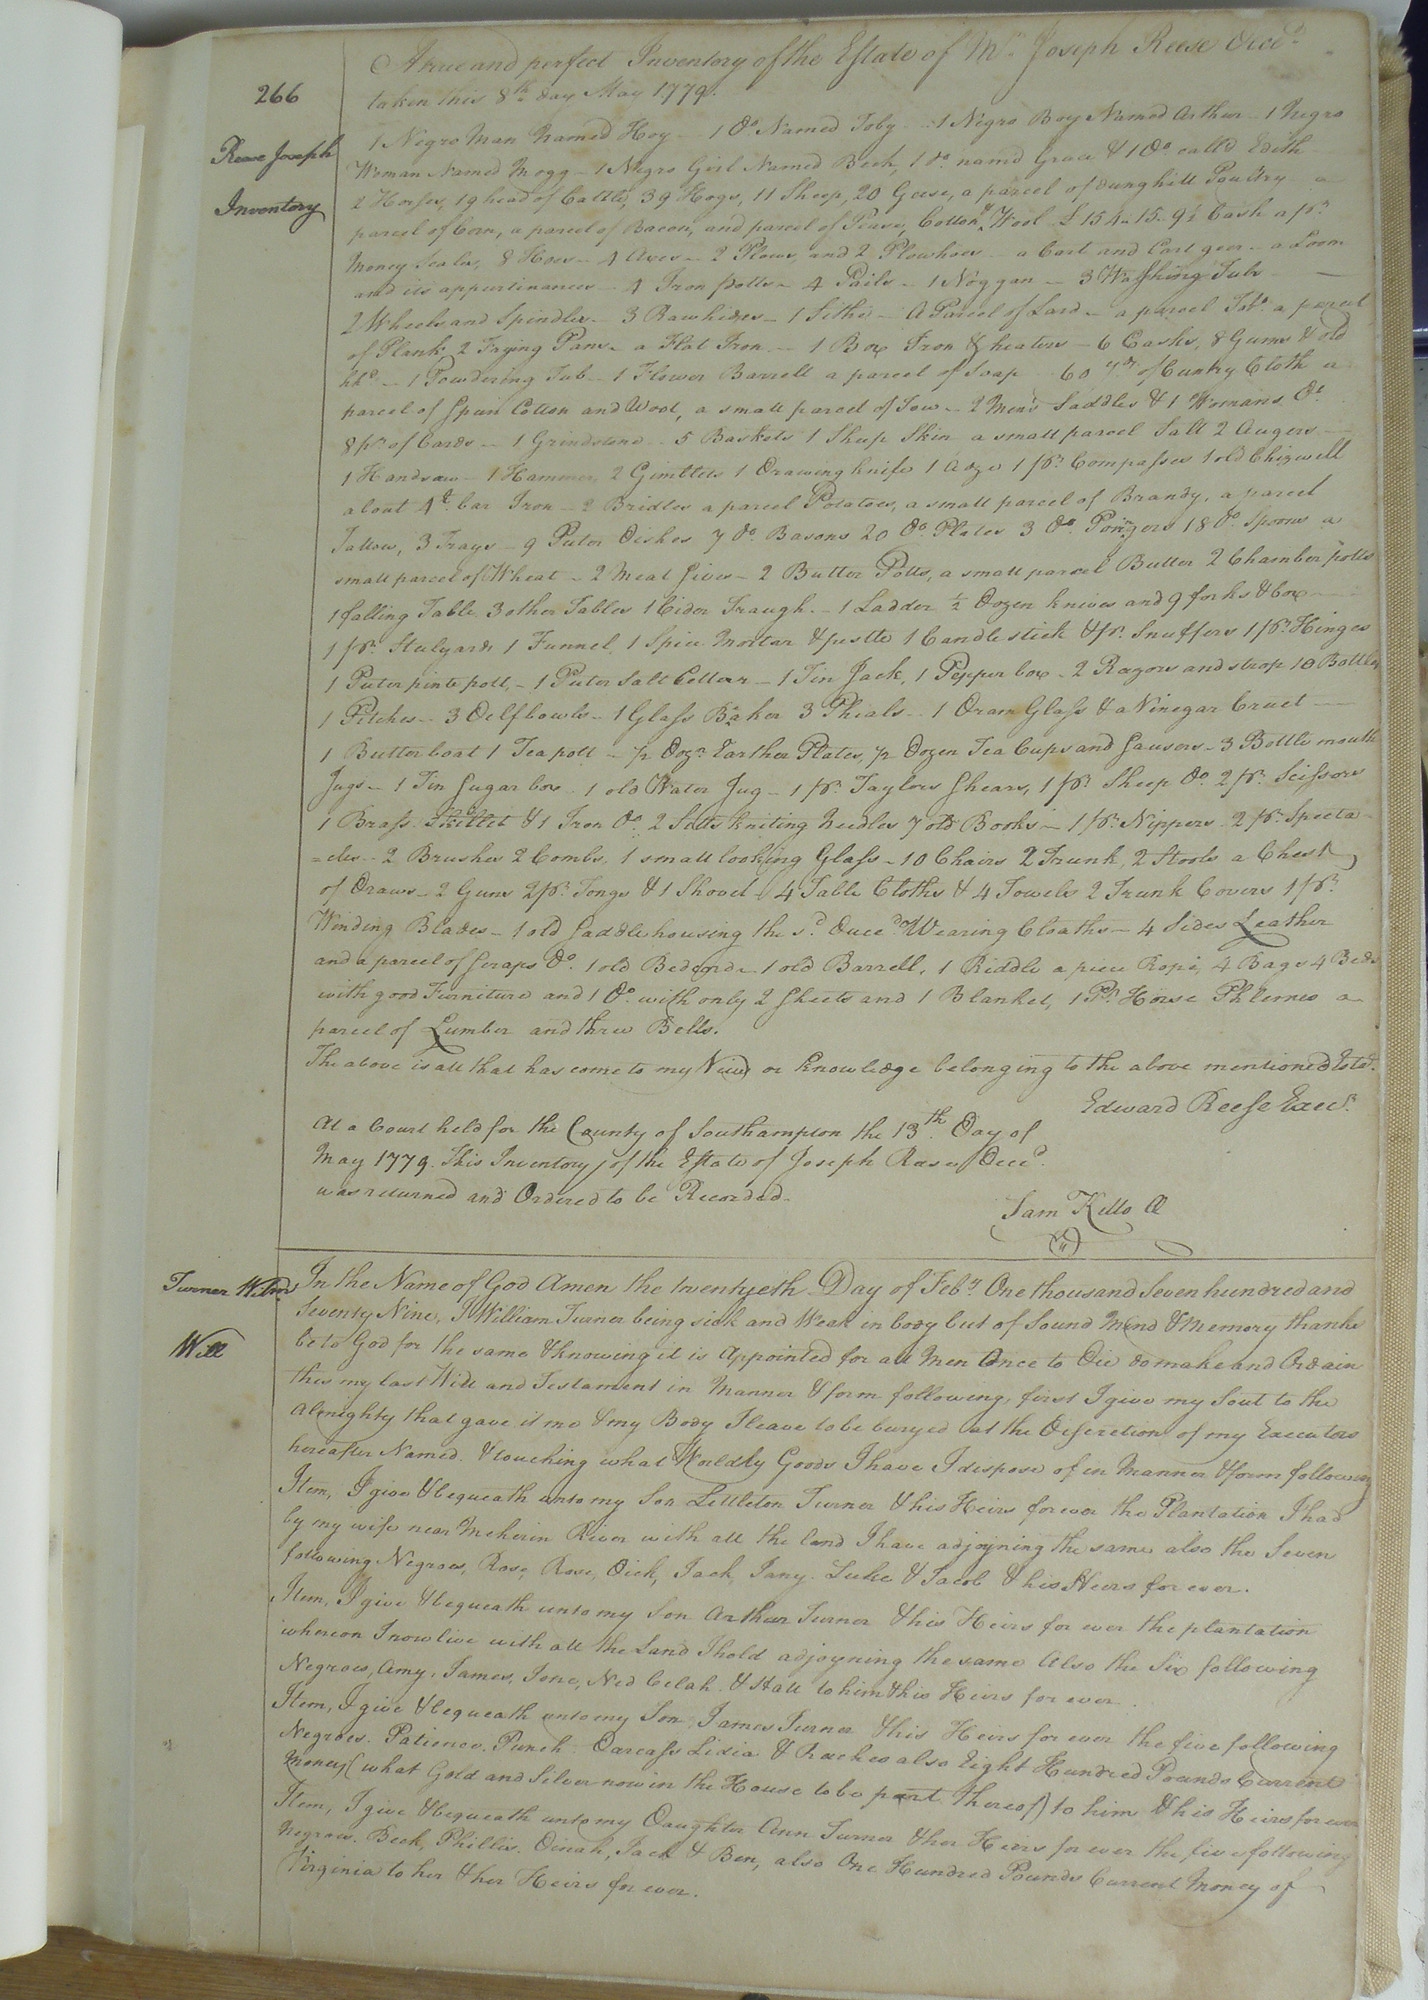 266
A true and perfect Inventory of the Estate of Mr. Joseph Reese Decd.
taken this 8th day May 1779.
Reese Joseph
Inventory
1 Negro Man Named Hoy - 1 Do Named Toby - 1 Negro Boy Named Arthur - 1 Negro
Woman Named Mogg - 1 Negro Girl Named Beck, 1 do. namd Grace & 1 Do. calld Edith
2 Horses, 19 head of Cattle, 39 Hogs, 11 Sheep, 20 Geese, a parcel of dunghill Poultry a
parcel of Corn, a parcel of Bacon, and parcel of Pease, Cotton & Wool £154..15..9½ Cash a pr.
Money Scales, 8 Hoes - 4 Axes - 2 Plows, and 2 Plowhoes - a Cart and Cart geer - a Loom
and its appurtinances - 4 Iron potts - 4 Pails - 1 Noggan - 3 Washing Tubs -
2 Wheels and Spindles - 3 Rawhides - 1 Sithe - A Parcel of Lard - a parcel Tobo. a parcel
of Plank, 2 Frying Pans - a Flat Iron - 1 Box Iron & heaters - 6 Casks, 8 Gums & old
hhd. - 1 Powdering Tub - 1 Flower Barrell a parcel of Soap 60 yds. of Cuntry Cloth a
parcel of Spun Cotton and Wool, a small parcel of Tow - 2 Men's Saddles & 1 Womans Do
8 pr. of Cards - 1 Grindstone - 5 Baskets 1 Sheep Skin a small parcel Salt 2 Augers
1 Handsaw - 1 Hammer, 2 Gimblets 1 Drawing knife 1 Adze 1 pr. Compasses 1 old Chizwell
about 4 lb. bar Iron - 2 Bridles a parcel Potatoes, a small parcel of Brandy, a parcel
Tallow, 3 Trays - 9 Puter Dishes 7 Do. Basons 20 Do. Plates 3 Do. Poringers 18 Do. Spoons a
small parcel of Wheat - 2 Meal Sives - 2 Butter Potts, a small parcel Butter 2 Chamber potts
1 falling Table 3 other Tables 1 Cider Traugh - 1 Ladder ½ Dozen knives and 9 forks & box
1 pr. Stulyards 1 Funnel, 1 Spice Mortar & pestle 1 Candlestick & pr. Snuffers 1 pr. Hinges
1 Puter pinte pott, - 1 Puter Salt Cellar - 1 Tin Jack, 1 Pepper box - 2 Razors and strop 10 Bottles
1 Pitcher - 3 Delf bowls - 1 Glass Baker 3 Phials - 1 Dram Glass & a Vinegar Cruet
1 Butter boat 1 Tea pott - ½ Dozn. Earthen Plates, ½ Dozen Tea Cups and Sausers - 3 Bottle mouth
Jugs - 1 Tin Sugar box - 1 old Water Jug - 1 pr. Taylors Shears, 1 pr. Sheep Do. 2 pr. Scissors
1 Brass Skillet & 1 Iron Do. 2 Setts kniting Needles 7 old Books - 1 pr. Nippers 2 pr. Specta
=cles - 2 Brushes 2 Combs, 1 small looking Glass - 10 Chairs 2 Trunk, 2 Stools a Chest
of Draws - 2 Guns 2 pr. Tongs & 1 Shovel - 4 Table Cloths & 4 Towels 2 Trunk Covers 1 pr.
Winding Blades - 1 old Saddle housing the sd. Deced. Wearing Cloaths - 4 Sides Leather
and a parcel of Scraps Do. 1 old Bedcord - 1 old Barrell, 1 Riddle a piece Rope, 4 Bags 4 Beds
with good Furniture and 1 Do. with only 2 Sheets and 1 Blanket, 1 Pr. Horse Phlemes a
parcel of Lumber and three Bells.
The above is all that has come to my View or knowledge belonging to the above mentioned Estd.
Edward Reese Execr.
At a Court held for the County of Southampton the 13th. Day of
May 1779. This Inventory of the Estate of Joseph Rase Decd.
was returned and Ordered to be Recorded -
Sam Kello C
Turner Willm
Will
In the Name of God Amen the twentyeth Day of Feby. One thousand Seven hundred and
Seventy Nine, I William Turner being sick and Weak in body but of Sound Mind & Memory thanks
be to God for the same & knowing it is Appointed for all Men Once to Die do make and Ordain
this my last Will and Testament in Manner & form following, first I give my Soul to the
Almighty that gave it me & my Body I leave to be buryed at the Discretion of my Executors
hereafter Named. & touching what Worldly Goods I have I dispose of in Manner & form following
Item, I give & bequeath unto my Son Littleton Turner & his Heirs forever the Plantation I had
by my wife near Meherin River with all the land I have adjoyning the same also the Seven
following Negroes, Rose, Rose, Dick, Jack, Jany Luke & Jacob & his Heirs for ever.
Item, I give & bequeath unto my Son Arthur Turner & his Heirs for ever the plantation
whereon I now live with all the Land I hold adjoyning the same Also the Six following
Negroes, Amy, James, Jone, Ned Celah & Hall to him & his Heirs for ever.
Item, I give & bequeath unto my Son James Turner & his Heirs for ever the five following
Negroes. Patience. Punch Darcass Lidia & Raches also Eight Hundred Pounds Current
Money (what Gold and Silver now in the House to be part thereof) to him & his Heirs for ever
Item, I give & bequeath unto my Daughter Ann Turner & her Heirs for ever the five following
Negroes. Beck, Phillis. Dinah, Jack & Ben, also One Hundred Pounds Current Money of
Virginia to her & her Heirs for ever.